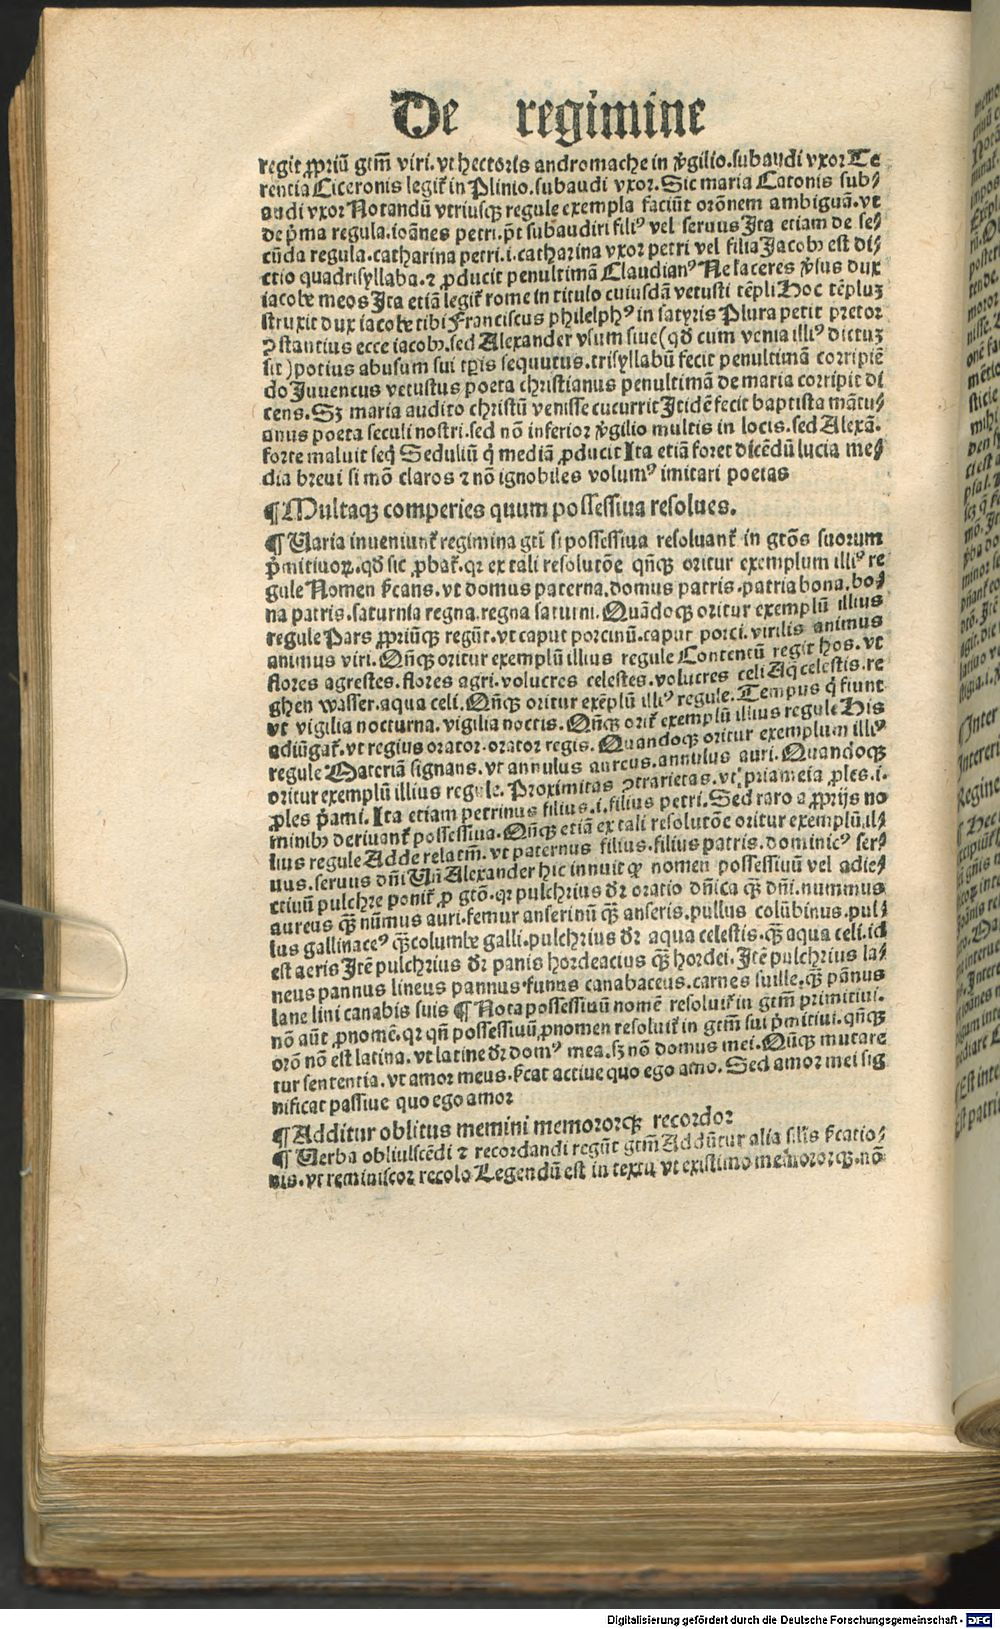 De regimine
regit ꝓpriū gtm̄ viri. vt hectoris andromache in v̓gilio. subaudi vxor Te
rentia Ciceronis legit᷑ in Plinio. subaudi vxor. Sic maria Catonis sub⸗
audi vxor Notandū vtriusqꝫ regule exempla faciūt orōnem ambiguā. vt
de p̓ma regula. ioānes petri. p̄t subaudiri filiꝰ vel seruus Ita etiam de se⸗
cūda regula. catharina petri. i. catharina vxor petri vel filia Jacobꝰ est di⸗
ctio quadrisyllaba. ⁊ ꝓducit penultimā Claudianꝰ Ne laceres v̓sus dux
iacobe meos Ita etiā legit᷑ rome in titulo cuiusdā vetusti tēpli Hoc tēpluꝫ
struxit dux iacobe tibi Franciscus philelphꝰ in satyris Plura petit pretor
ꝯstantius ecce iacobꝰ. sed Alexander vsum siue (qđ cum venia illiꝰ dictuꝫ
sit) potius abusum sui tꝑis sequutus. trisyllabū fecit penultimā corripiē
do Juuencus vetustus poeta christianus penultimā de maria corripit di
cens. Sꝫ maria audito christū venisse cucurrit Itidē fecit baptista mātu⸗
anus poeta seculi nostri. sed nō inferior v̓gilio multis in locis. sed Alexā.
forte maluit seq̇ Seduliū q̇ mediā ꝓducit Ita etiā foret dicēdū lucia me⸗
dia breui si mō claros ⁊ nō ignobiles volumꝰ imitari poetas
¶ Multaqꝫ comperies quum possessiua resolues.
¶ Varia inueniunt᷑ regimina gtī si possessiua resoluant᷑ in gtōs suorum
p̓mitiuoꝝ. qđ sic ꝓbat᷑. qꝛ ex tali resolutōe qn̄qꝫ oritur exemplum illiꝰ re
gule Nomen s̓cans. vt domus paterna. domus patris. patria bona. bo⸗
na patris. saturnia regna. regna saturni. Quādoqꝫ oritur exemplū illius
regule Pars ꝓpriūqꝫ regūt. vt caput porcinū. caput porci. virilis animus
animus viri. Qn̄qꝫ oritur exemplū illius regule Contentū regit hos. vt
flores agrestes. flores agri. volucres celestes. volucres celi Aq̄ celestis. re
ghen wasser. aqua celi. Qn̄qꝫ oritur exēplū illiꝰ regule. Tempus q̇ fiunt
vt vigilia nocturna. vigilia noctis. Qn̄qꝫ orit᷑ exemplū illius regule His
adiūgat᷑. vt regius orator. orator regis. Quandoqꝫ oritur exemplum illiꝰ
regule Materiā signans. vt annulus aureus. annulus auri. Quandoqꝫ
oritur exemplū illius regule. Proximitas ꝯtrarietas. vt priameia ꝓles. i.
ꝓles p̓ami. Ita etiam petrinus filius. i. filius petri. Sed raro a ꝓprijs no
minibꝰ deriuant᷑ possessiua. Qn̄qꝫ etiā ex tali resolutōe oritur exemplū il⸗
lius regule Adde relatm̄. vt paternus filius. filius patris. dominicꝰ ser⸗
uus. seruus dn̄i Vn̄ Alexander hic innuit ꝙ nomen possessiuū vel adie⸗
ctiuū pulchre ponit᷑ ꝓ gtō. qꝛ pulchrius dr̄ oratio dn̄ica qꝫ̄ dn̄i. nummus
aureus qꝫ̄ nūmus auri. femur anserinū qꝫ̄ anseris. pullus colūbinus. pul⸗
lus gallinaceꝰ qꝫ̄ columbe galli. pulchrius dr̄ aqua celestis. qꝫ̄ aqua celi. id
est aeris Itē pulchrius dr̄ panis hordeacius qꝫ̄ hordei. Itē pulchrius la⸗
neus pannus lineus pannus funus canabaceus. carnes suille. qꝫ̄ pānus
lane lini canabis suis ¶ Nota possessiuū nomē resoluit᷑ in gtm̄ primitiui.
nō aūt ꝓnomē. qꝛ qn̄ possessiuū ꝓnomen resoluit᷑ in gtm̄ sui p̓mitiui. qn̄qꝫ
orō nō est latina. vt latine dr̄ domꝰ mea. sꝫ nō domus mei. Qn̄qꝫ mutare
tur sententia. vt amor meus. s̓cat actiue quo ego amo. Sed amor mei sig
nificat passiue quo ego amor
¶ Additur oblitus memini memororqꝫ recordor
¶ Verba obliuiscēdi ⁊ recordandi regūt gtm̄ Addūtur alia sil̓is s̓catio⸗
nis. vt reminiscor recolo Legendū est in textu vt existimo memororqꝫ. nō
Digitalisierung gefördert durch die Deutsche Forschungsgemeinschaft - DFG